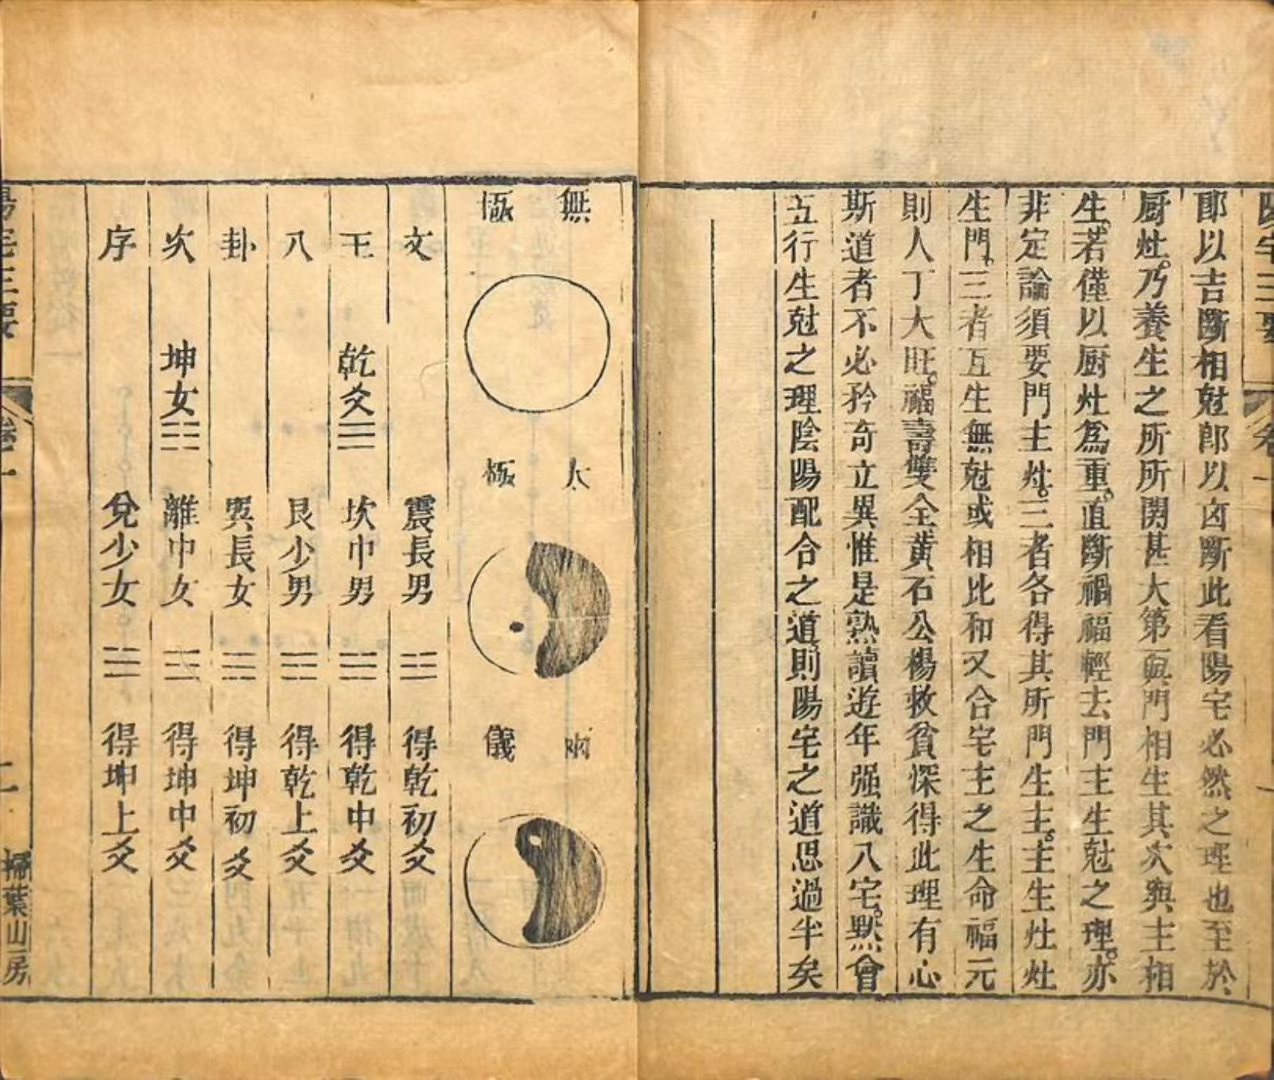 陽宅三要
卷一
卽以吉斷相尅卽以凶斷此看陽宅必然之理也至於
厨灶。乃養生之所所関甚大第與門相生其次與主相
生。若僅以厨灶爲重。直斷禍福輕去門主生尅之理。亦
非定論須要門主灶。三者各得其所門生主。主生灶灶
生門。三者互生無尅或相比和又合宅主之生命福元
則人丁大旺。福壽雙全黃石公楊救貧深得此理有心
斯道者不必矜奇立異惟是熟讀遊年强識八宅。默會
五行生尅之理陰陽配合之道。則陽宅之道思過半矣
無極
太極
兩儀
文 震長男 ☳ 得乾初爻
王 乾爻☰ 坎中男 ☵ 得乾中爻
八 艮少男 ☶ 得乾上爻
卦 巽長女 ☴ 得坤初爻
次 坤女☷ 離中女 ☲ 得坤中爻
序 兌少女。 ☱ 得坤上爻
陽宅三要
卷一
二
掃葉山房